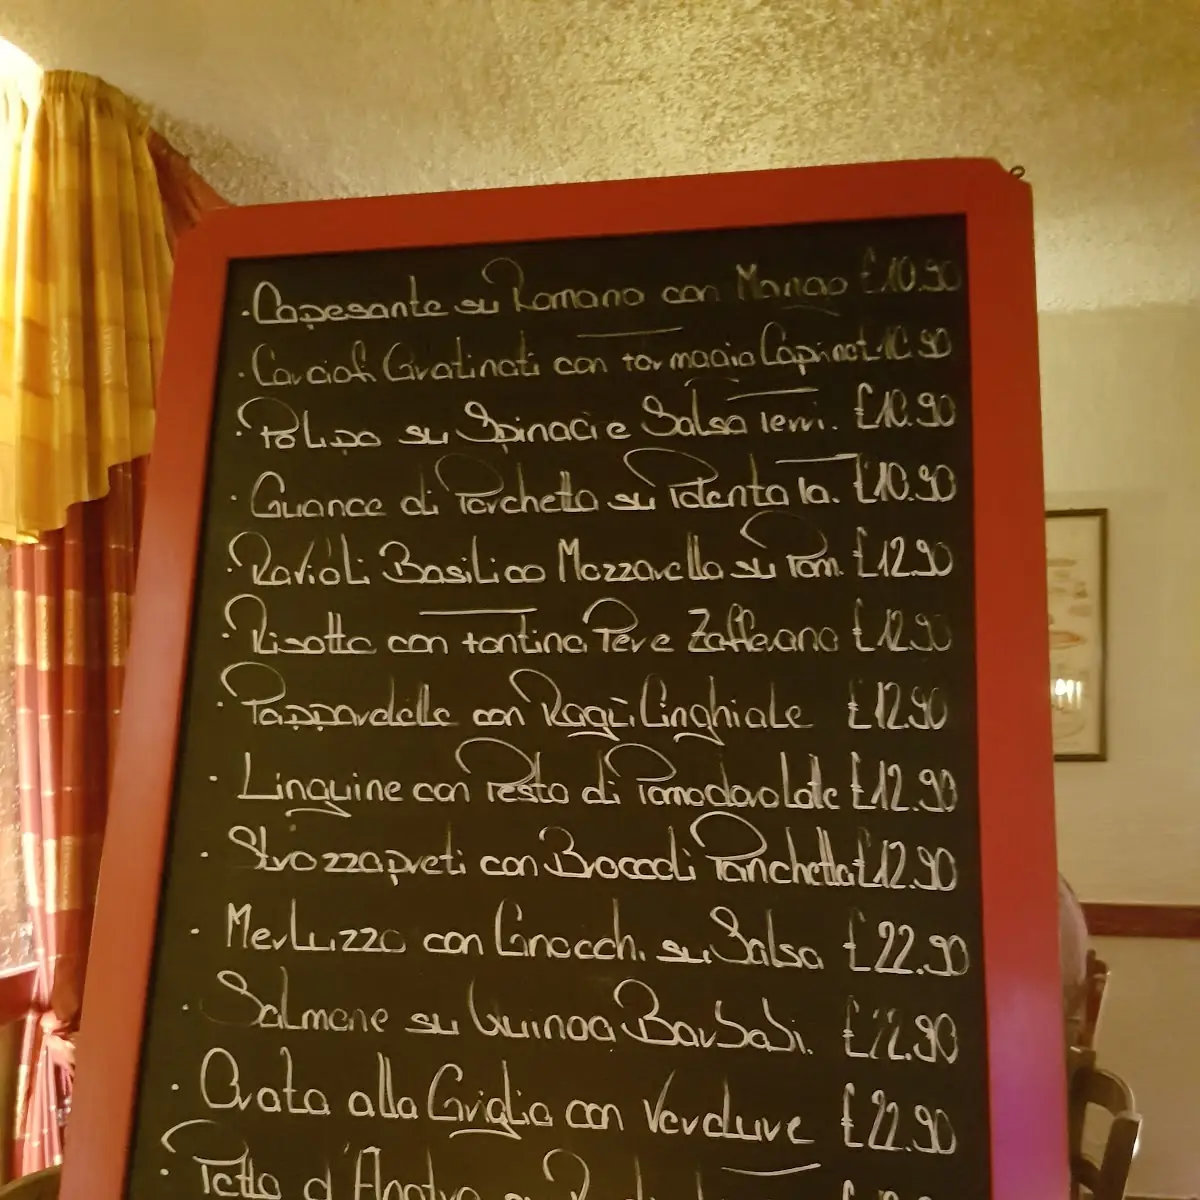 · Capesante su Romano con Mango £10.90
· Carciofi Gratinati con formaggio Caprinot. 10.90
· Polipo su Spinaci e Salsa Terri. £10.90
· Guance di Porchetta su Polenta Ta. £10.90
· Ravioli Basilico Mozzarella su Pom. £12.90
· Risotto con Fontina, Pere Zafferano £12.90
· Pappardelle con Ragù Cinghiale £12.90
· Linguine con Pesto di Pomodoro £12.90
· Strozzapreti con Broccoli Panchetta £12.90
· Merluzzo con Gnocchi su Salsa £22.90
· Salmone su Quinoa Barbabi. £22.90
· Orata alla Griglia con Verdure £22.90
· Petto d'Anatra su